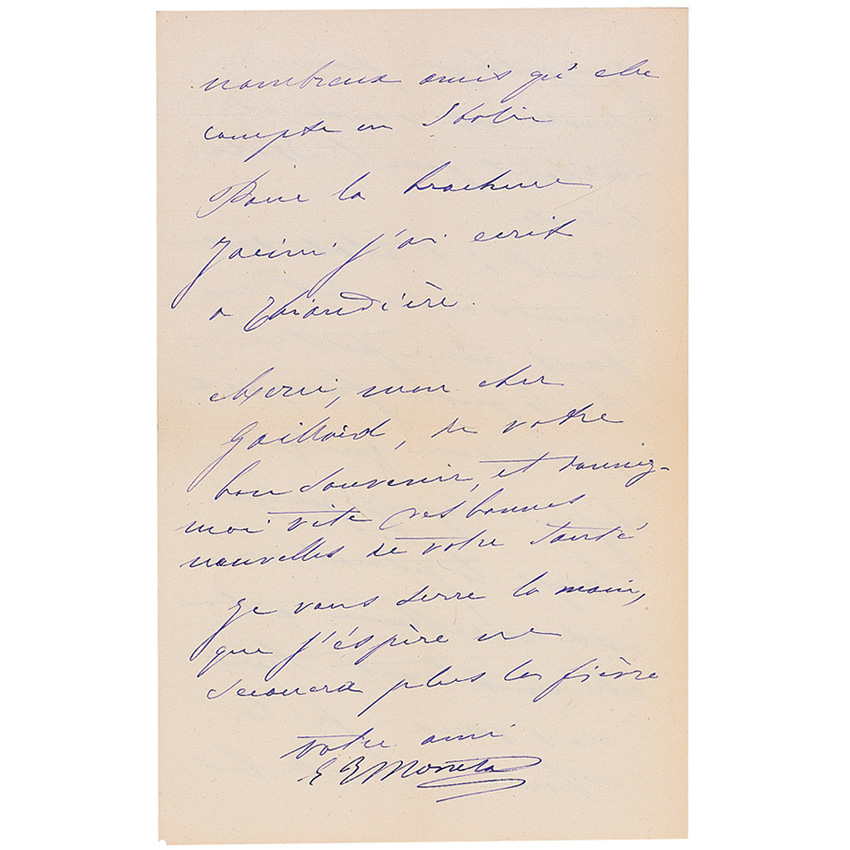 nombreux amis qu'elle
compte en Italie
Pour la brochure
j'ai ecrit
a
Merci, mon cher
Gaillard, de votre
bon souvenir, et donnez-
moi vite des bonnes
nouvelles de votre santé
Je vous serre la main,
que j'éspère ne
secouera plus la fièvre
votre ami
E T Moneta